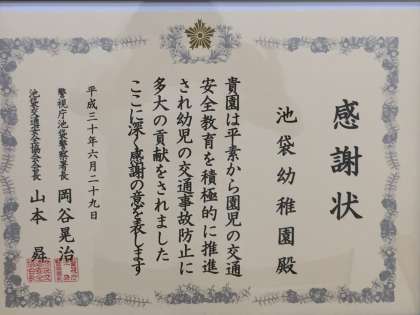 感謝状
池袋幼稚園殿
貴園は平素から園児の交通
安全教育を積極的に推進
され幼児の交通事故防止に
多大の貢献をされました
ここに深く感謝の意を表します
平成三十年六月二十九日
警視庁池袋警察署長 岡谷晃治
池袋交通安全協会会長 山本 昇